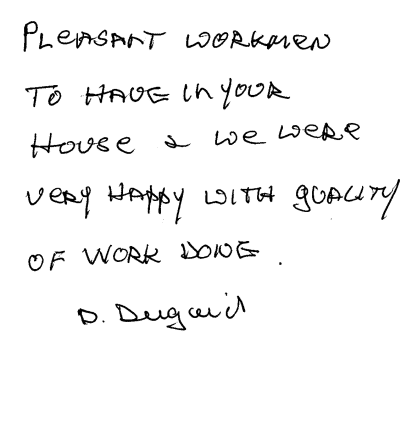 PLEASANT WORKMEN
TO HAVE IN YOUR
HOUSE & WE WERE
VERY HAPPY WITH QUALITY
OF WORK DONE.
D. Duguid